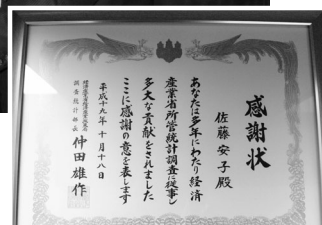 感謝状
佐藤安子殿
あなたは多年にわたり経済
産業省所管統計調査に従事し
多大な貢献をされました
ここに感謝の意を表します
平成十九年十月十八日
経済産業省経済産業政策局
調査統計部長 仲田雄作